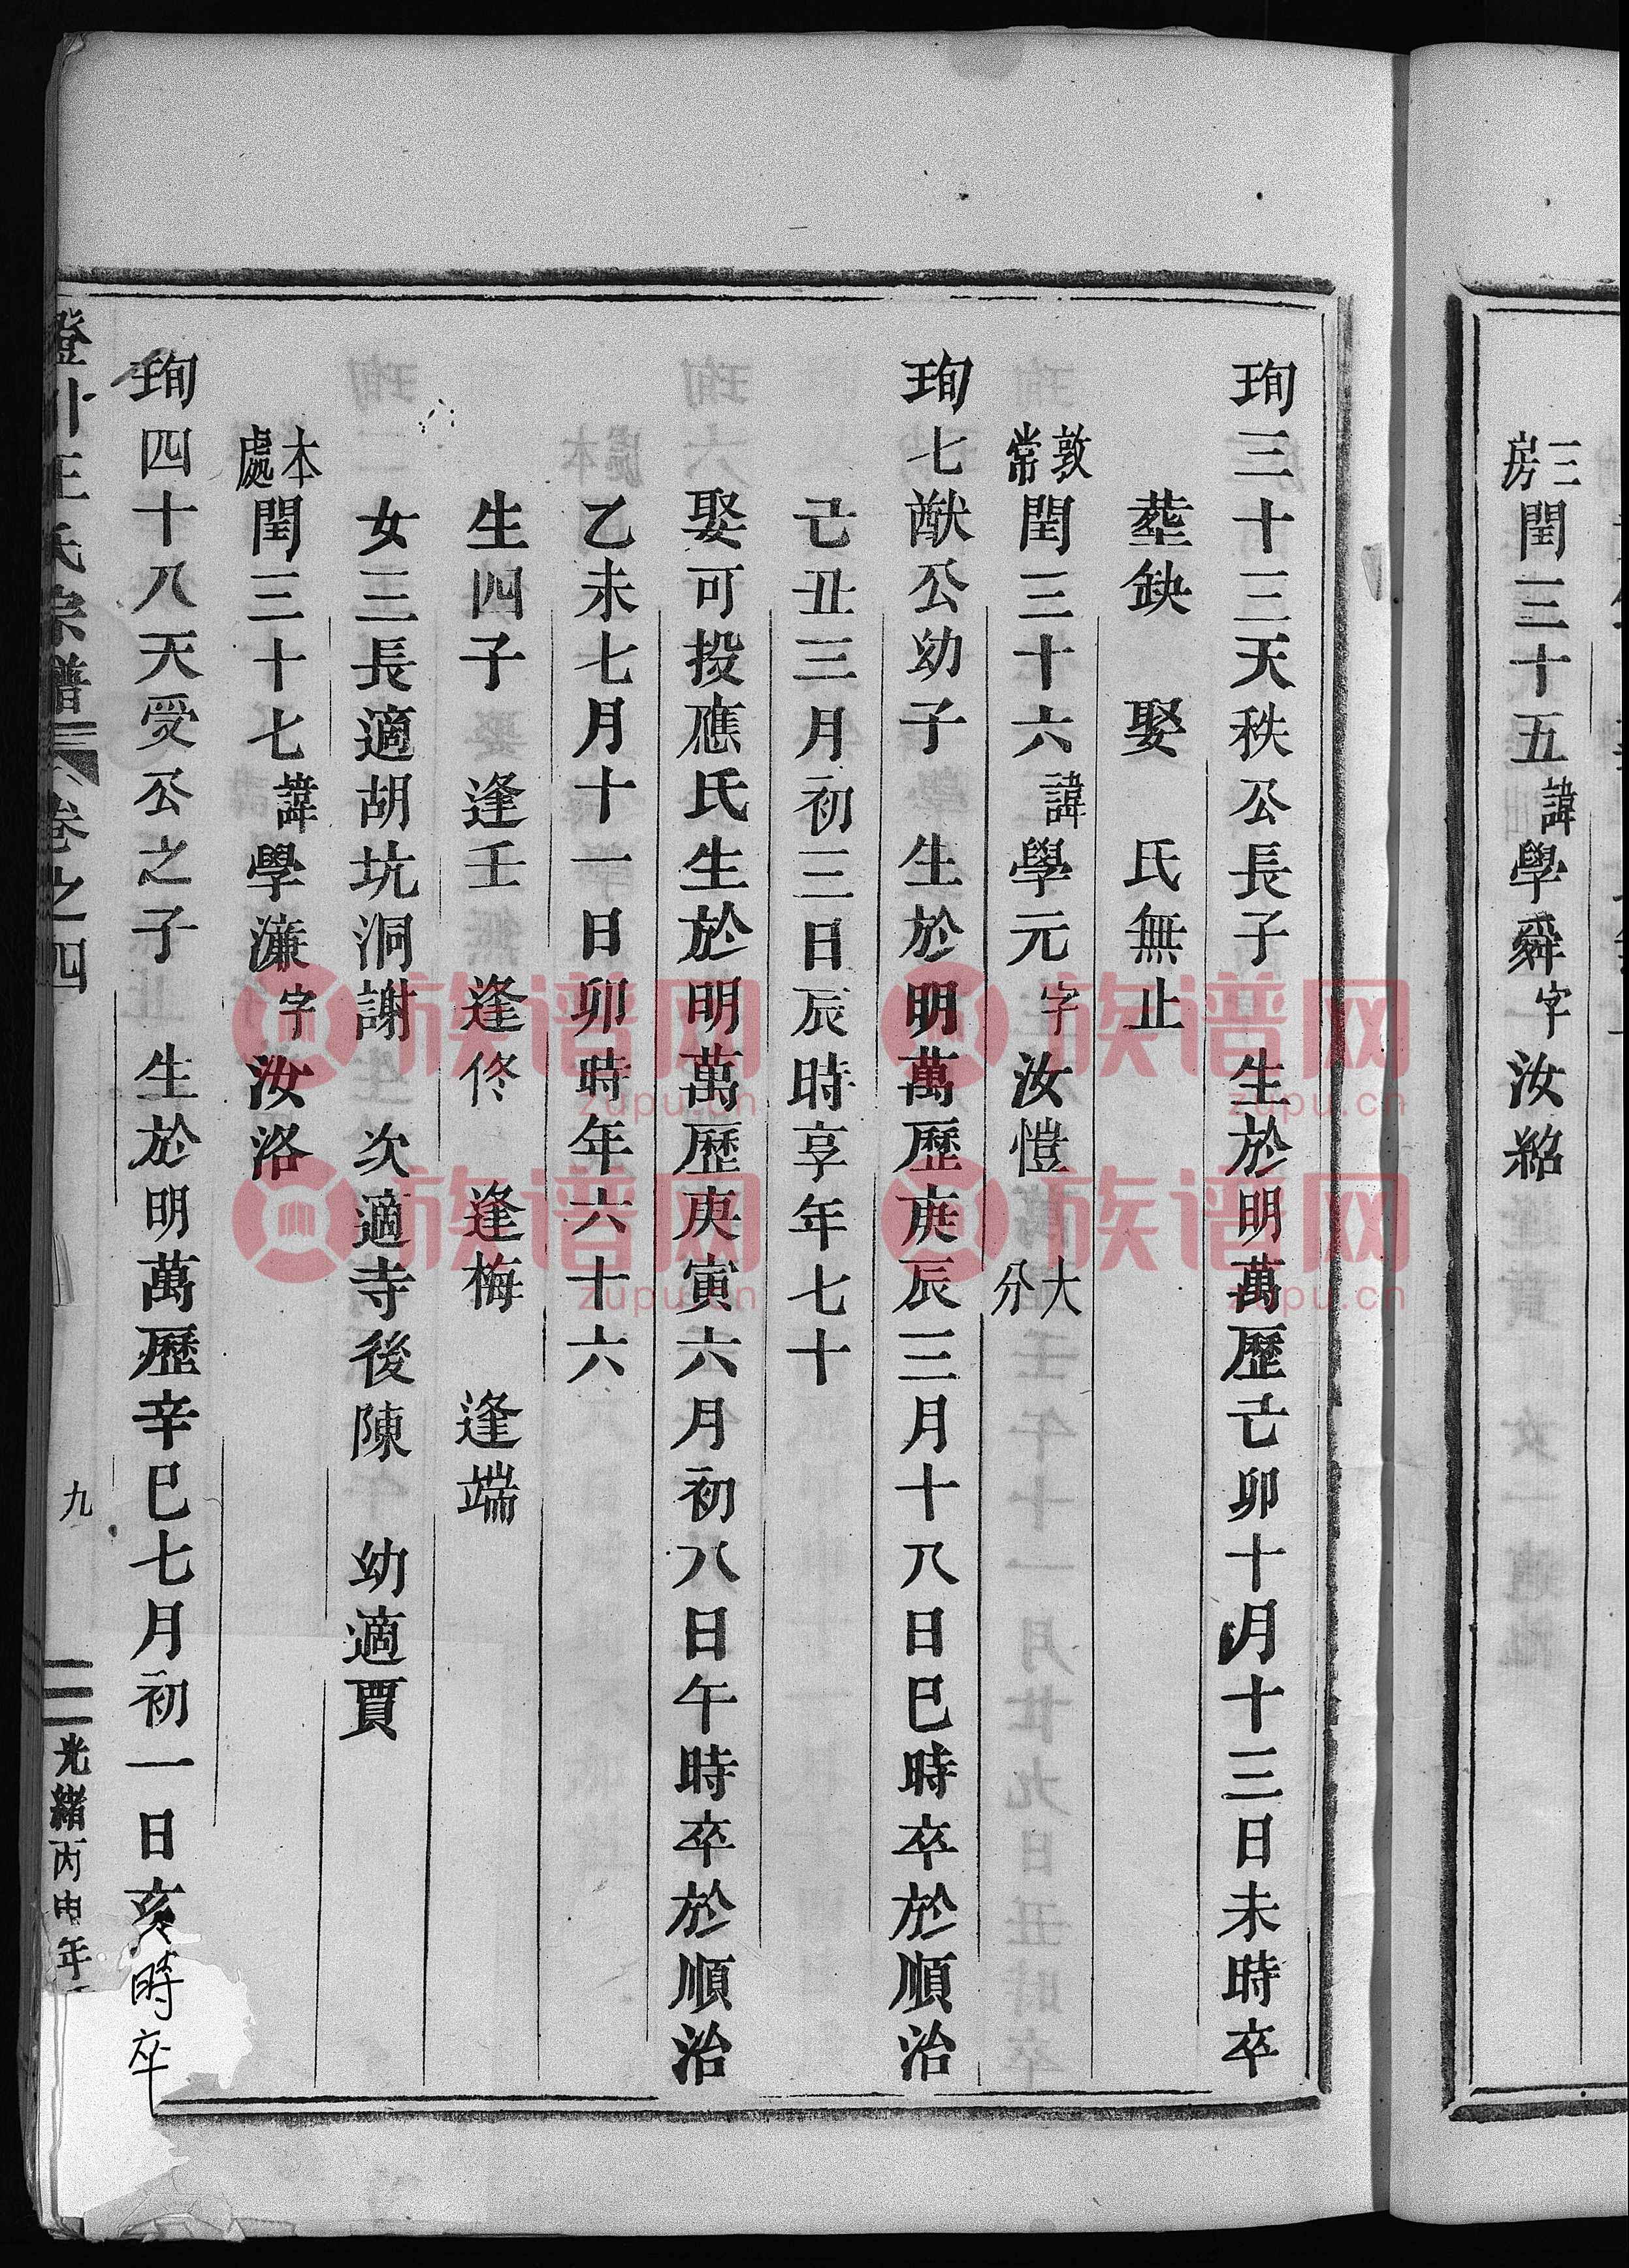 三房閏三十五諱學舜字汝紹
珣三十三天秩公長子　生於明萬歷己卯十月十三日未時卒
塟缺　娶　氏無止
敦常閏三十六諱學元字汝愷　大分
珣七猷公幼子　生於明萬歷庚辰三月十八日巳時卒於順治
己丑三月初三日辰時享年七十
娶可投應氏生於明萬歷庚寅六月初八日午時卒於順治
乙未七月十一日卯時年六十六
生四子　逢壬　逢佟　逢梅　逢端
女三長適胡坑洞謝　次適寺後陳　幼適賈
本處閏三十七諱學濂字汝洛
珣四十八天受公之子　生於明萬歷辛巳七月初一日亥時卒
王氏宗譜　卷之四　九　光緒丙申年
族谱网
zupu.cn
族谱网
zupu.cn
族谱网
zupu.cn
族谱网
zupu.cn